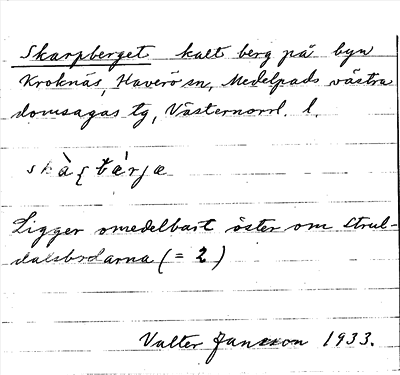 Skarpberget kalt berg på byn
Kroknäs, Haverö sn, Medelpads västra
domsagas tg, Västernorrl. l.
Ligger omedelbart öster om Strul-
dalsbodarna (= 2)
Valter Jansson 1933.